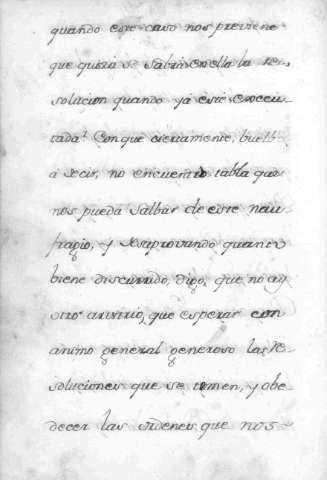 quando este caso nos previene
que quiza se sabrà en ella la re-
solucion quando yá esté execu-
tada? Con que ciertamente, buelbo
á decir, no encuentro tabla que
nos pueda salbar de este nau-
fragio, y desaprovando quanto
biene discurrido, digo, que no ay
otro arvitrio, que esperar con
animo general generoso las re-
soluciones que se temen, y obe-
decer las ordenes que nos